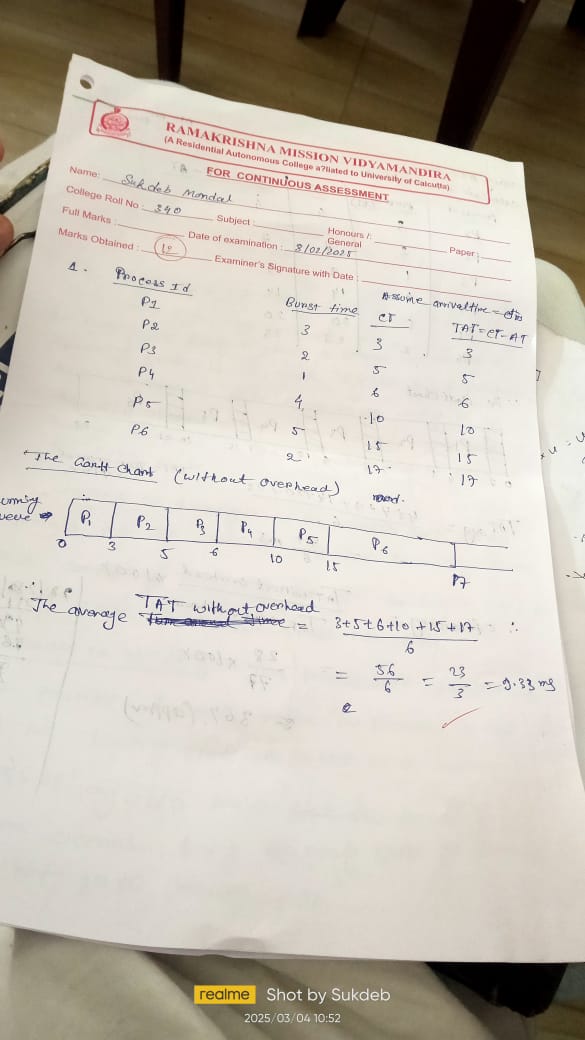 RAMAKRISHNA MISSION VIDYAMANDIRA
(A Residential Autonomous College a?liated to University of Calcutta)
FOR CONTINUOUS ASSESSMENT
Name: Sukdeb Mondal
College Roll No : 340 Subject : Honours /: General Paper :
Full Marks : Date of examination : 8/02/2025
Marks Obtained : Examiner's Signature with Date :
1. Process Id Burst time CT TAT = CT - AT
Assume arrival time =
P1 3 3 3
P2 2 5 5
P3 1 6 6
P4 4 10 10
P5 5 15 15
P6 2 17 17
The Gantt chart (without overhead)
P1 P2 P3 P4 P5 P6
0 3 5 6 10 15 17
∴ The average TAT without overhead = 3+5+6+10+15+17 / 6
= 56/6 = 23/3 = 9.33 ms
realme Shot by Sukdeb
2025/03/04 10:52